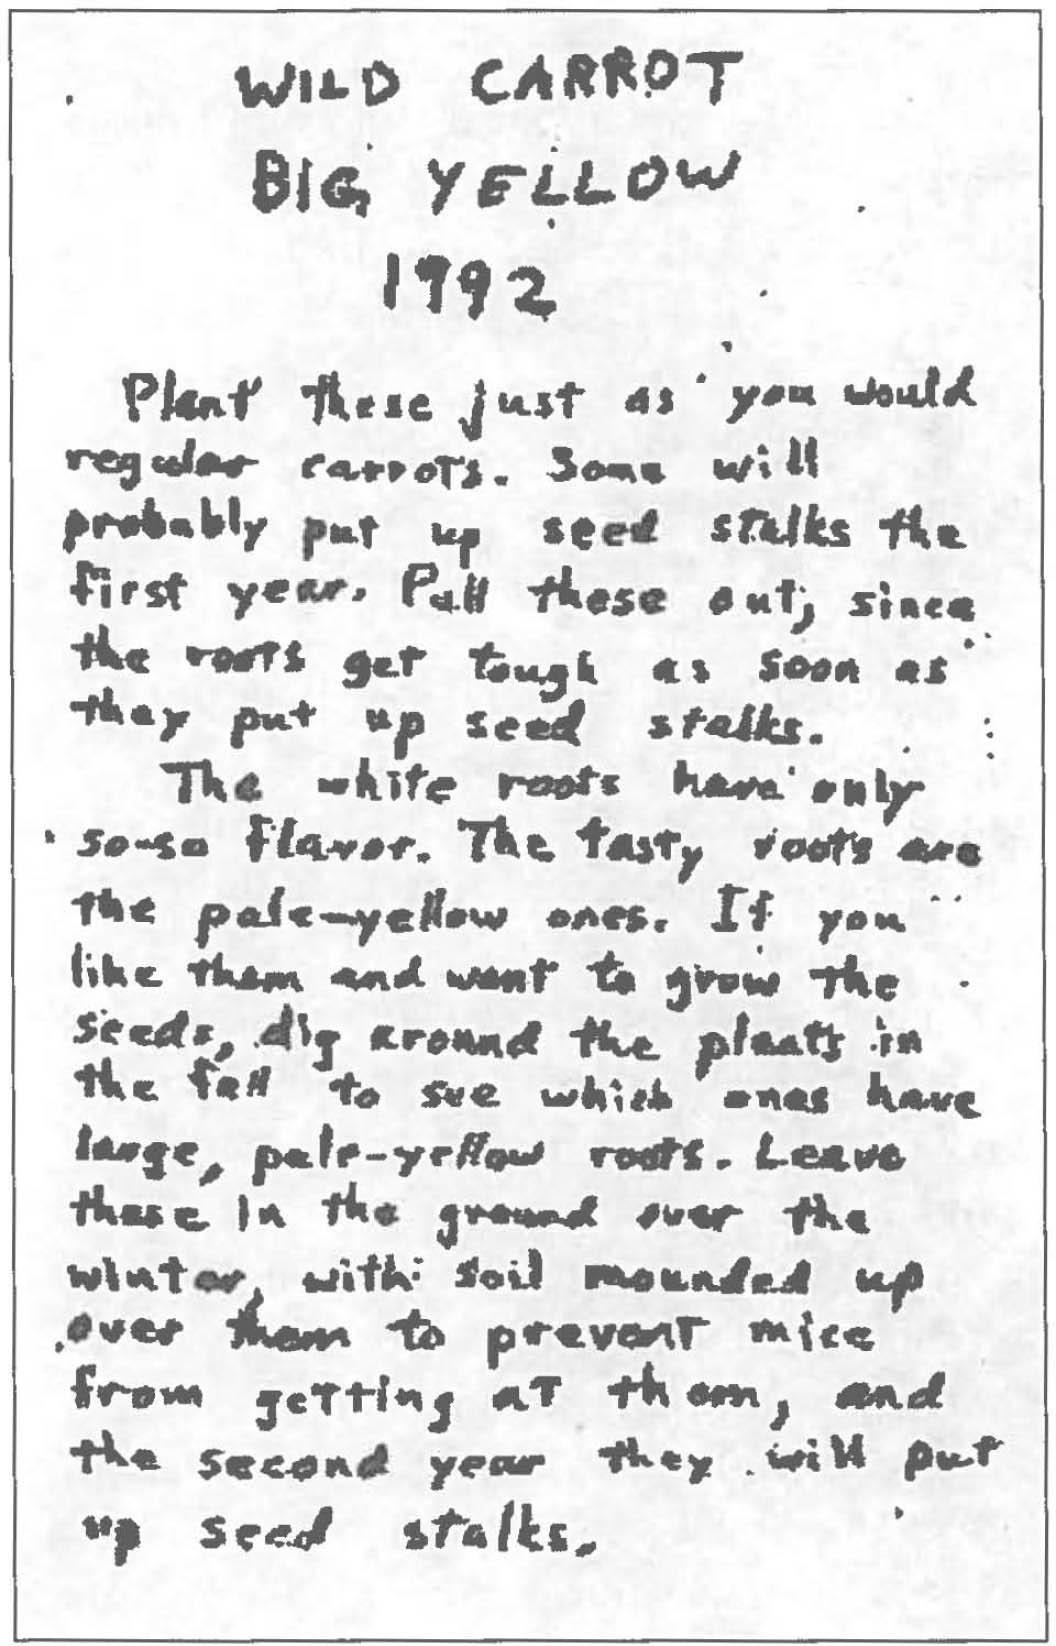 WILD CARROT
BIG YELLOW
1992
Plant these just as you would
regular carrots. Some will
probably put up seed stalks the
first year. Pull these out, since
the roots get tough as soon as
they put up seed stalks.
The white roots have only
so-so flavor. The tasty roots are
the pale-yellow ones. If you
like them and want to grow the
seeds, dig around the plants in
the fall to see which ones have
large, pale-yellow roots. Leave
these in the ground over the
winter, with soil mounded up
over them to prevent mice
from getting at them, and
the second year they will put
up seed stalks.